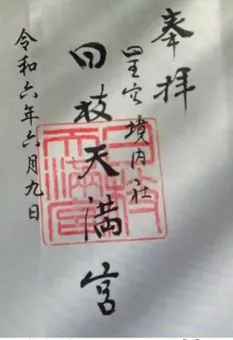 奉拝
境内社
日枝天満宮
令和六年六月九日